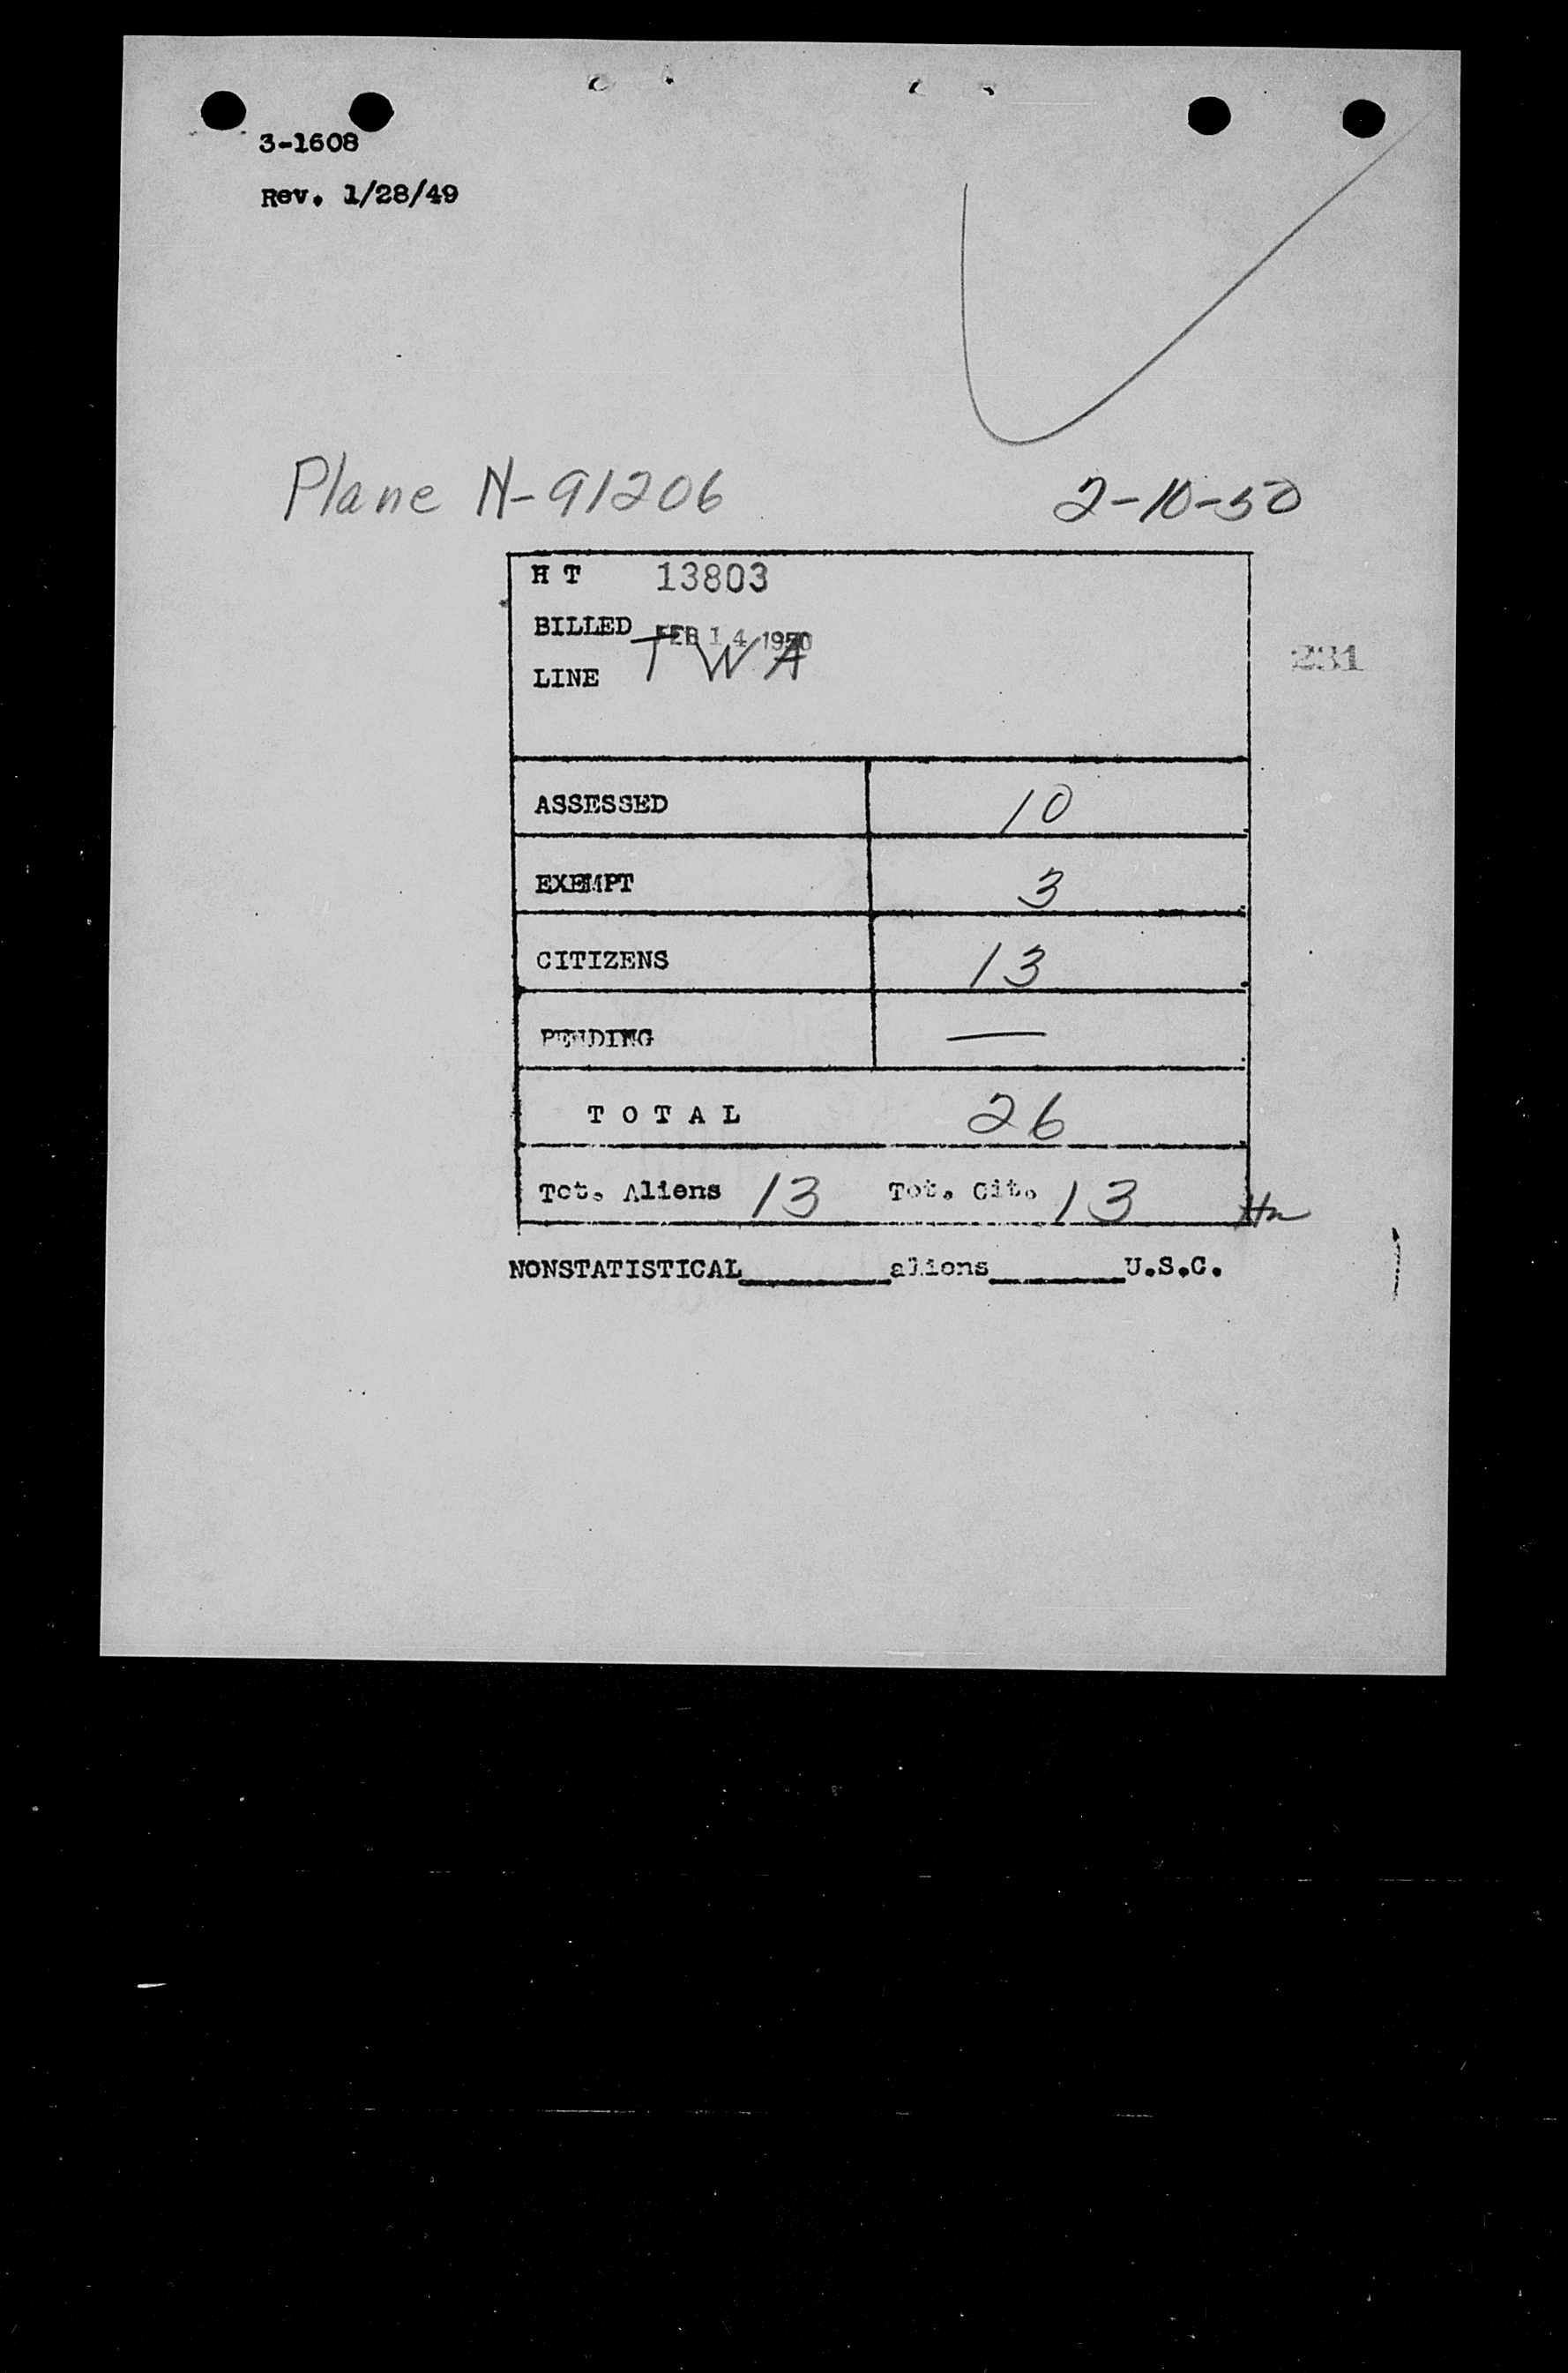 3-1608
Rev. 1/28/49
Plane N-91206 2-10-50
H T 13803
BILLED FEB 14 1950
LINE T W A
231
ASSESSED 10
EXEMPT 3
CITIZENS 13
PENDING —
T O T A L 26
Tot. Aliens 13 Tot. Cit. 13
NONSTATISTICAL________aliens________U.S.C.